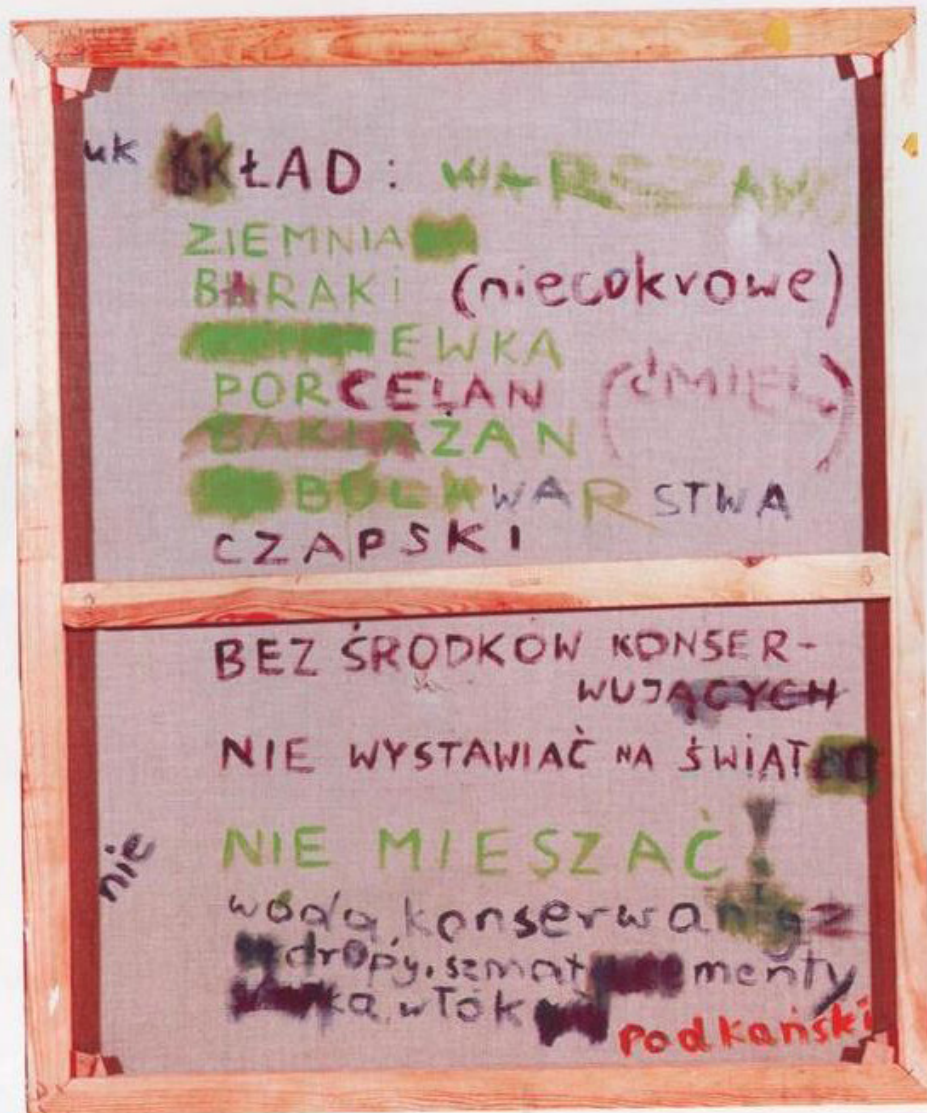 uk KŁAD: WARSZAW
ZIEMNIA
BARAKI (niecokrowe)
EWKA
PORCELAN (ćMIEL)
BAKŁAŻAN
BÓLKWARSTWA
CZAPSKI
BEZ ŚRODKÓW KONSER-
WUJĄCYCH
NIE WYSTAWIAĆ NA ŚWIAT
NIE MIESZAĆ!
nie
wodą, konserwa
dropy, szmat menty
ka, włók
Podkański